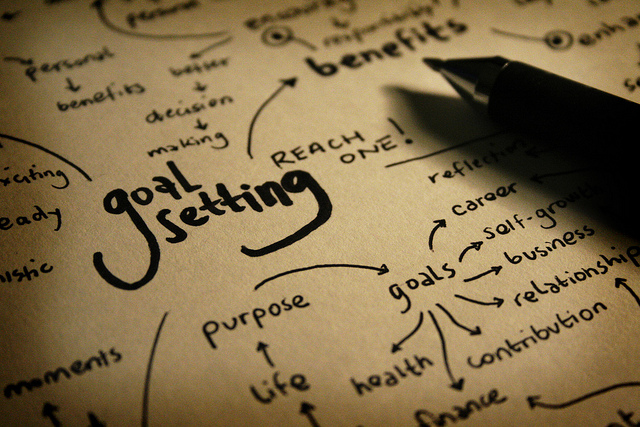 personal
benefits
personal
benefits
better
decision
making
REACH
ONE!
goal
setting
reflection
career
self-growth
business
relationship
contribution
finance
health
goals
purpose
life
moments